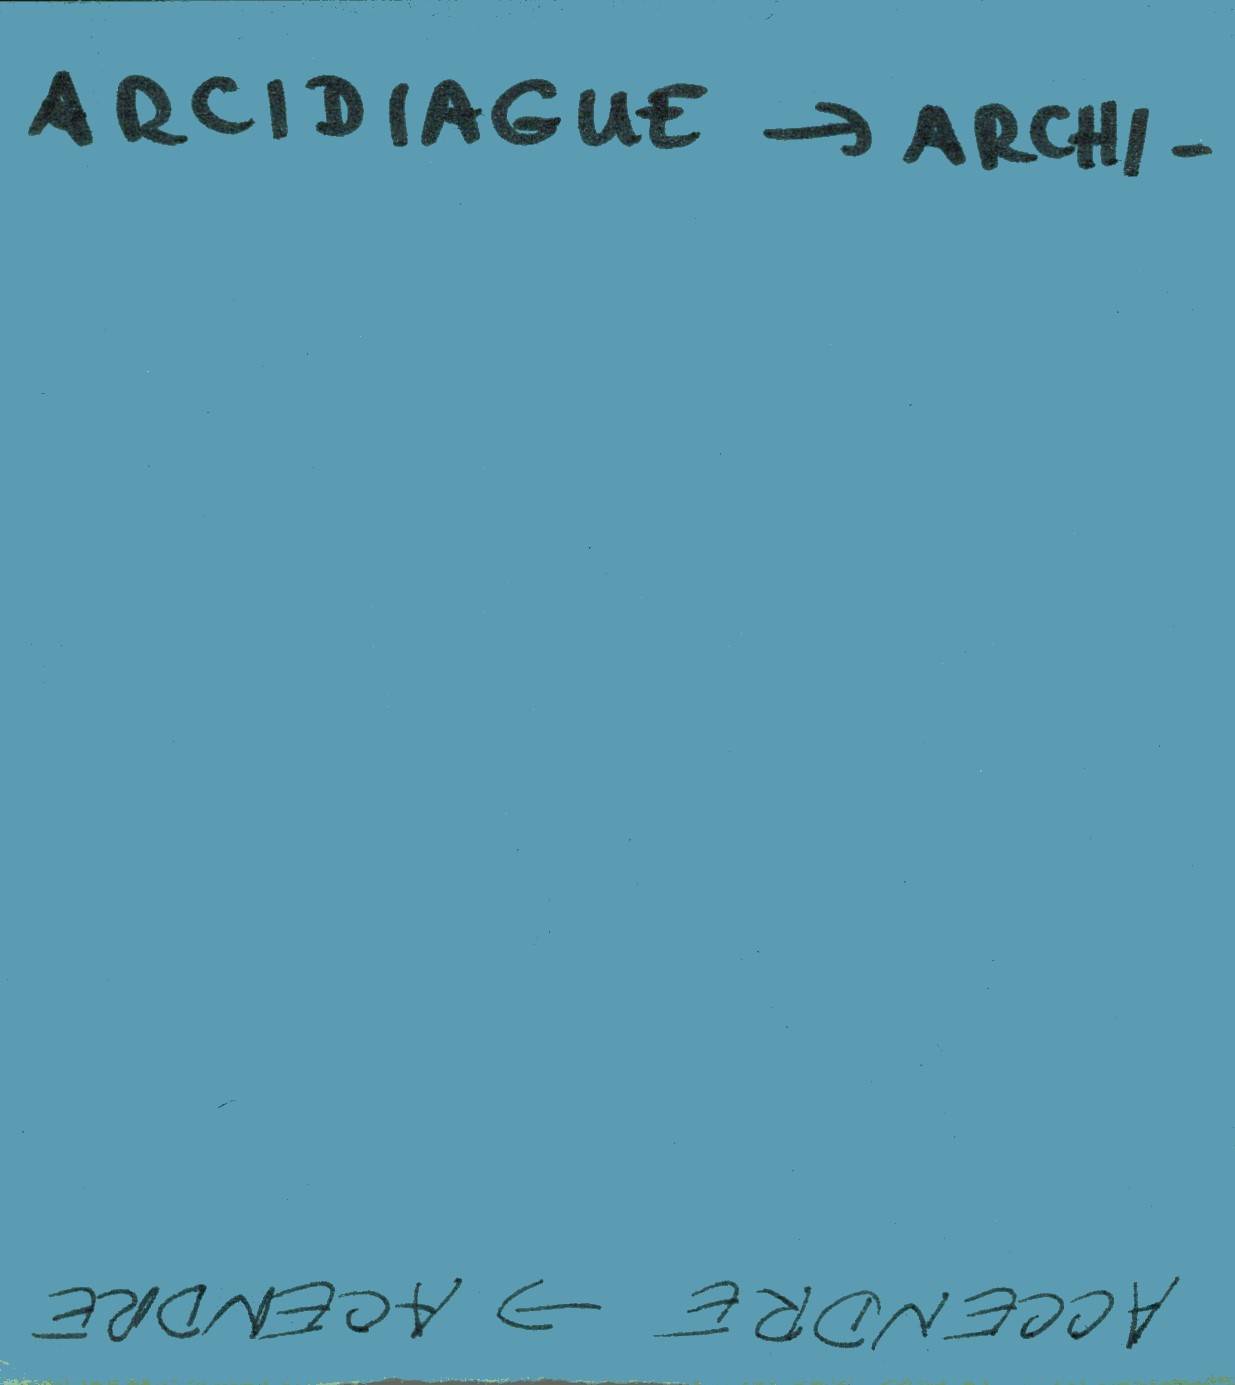 ARCIDIAGUE → ARCHI-
ACCENDRE → ACENDRE